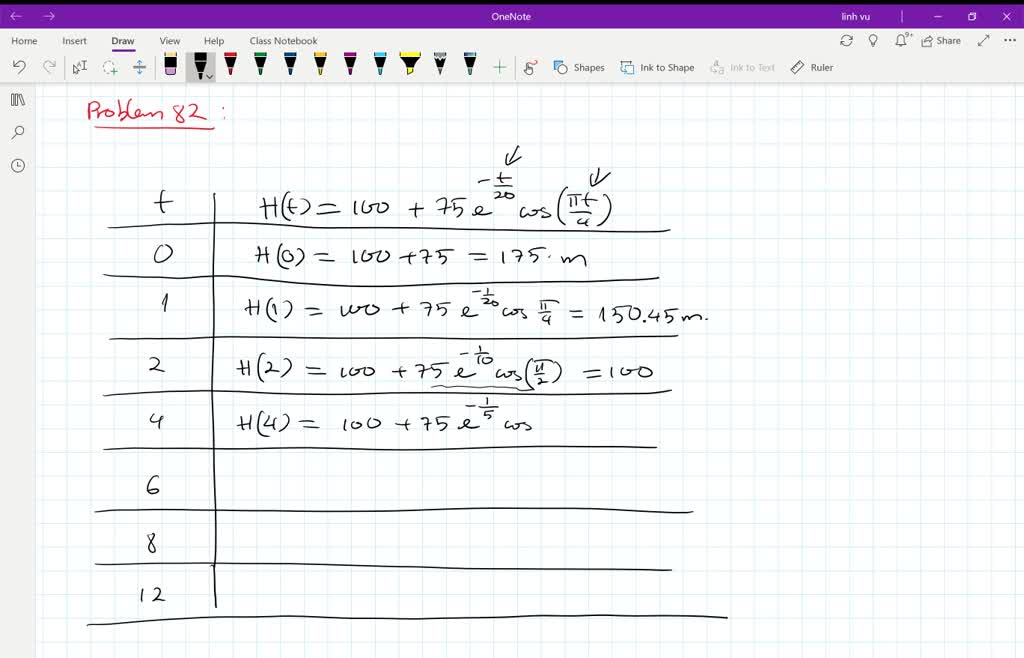 OneNote
linh vu
Home Insert Draw View Help Class Notebook
9+ Share
Shapes Ink to Shape Ink to Text Ruler
Problem 82 :
t H(t) = 100 + 75 e^{-t/20} cos(πt/4)
0 H(0) = 100 + 75 = 175. m
1 H(1) = 100 + 75 e^{-1/20} cos π/4 = 150.45 m.
2 H(2) = 100 + 75 e^{-1/10} cos(π/2) = 100
4 H(4) = 100 + 75 e^{-1/5} cos
6
8
12